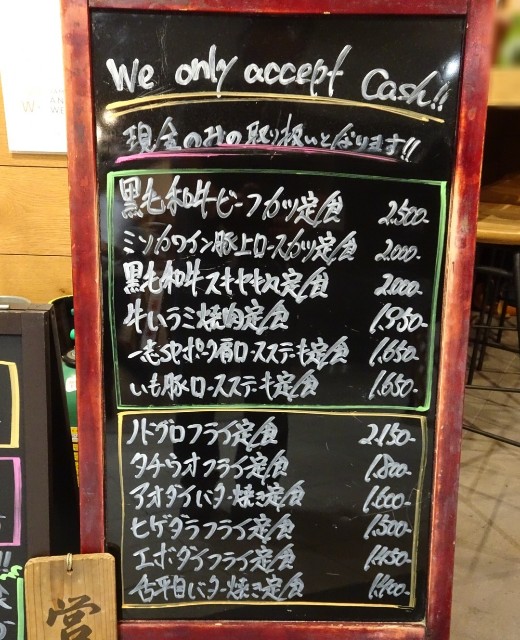 We only accept Cash!!
現金のみの取り扱いとなります!!
黒毛和牛ビーフカツ定食 2,500-
ミンカワイン豚上ロースカツ定食 2,000-
黒毛和牛スキヤキ丸定食 2,000-
牛いラミ焼肉定食 1,950-
ポーク肩ロースステーキ定食 1,650-
いも豚ロースステーキ定食 1,650-
ノドグロフライ定食 2,150-
タチウオフライ定食 1,800-
アオダイバター焼き定食 1,600-
ヒゲダラフライ定食 1,500-
エボダイフライ定食 1,450-
舌平目バター焼き定食 1,400-
営